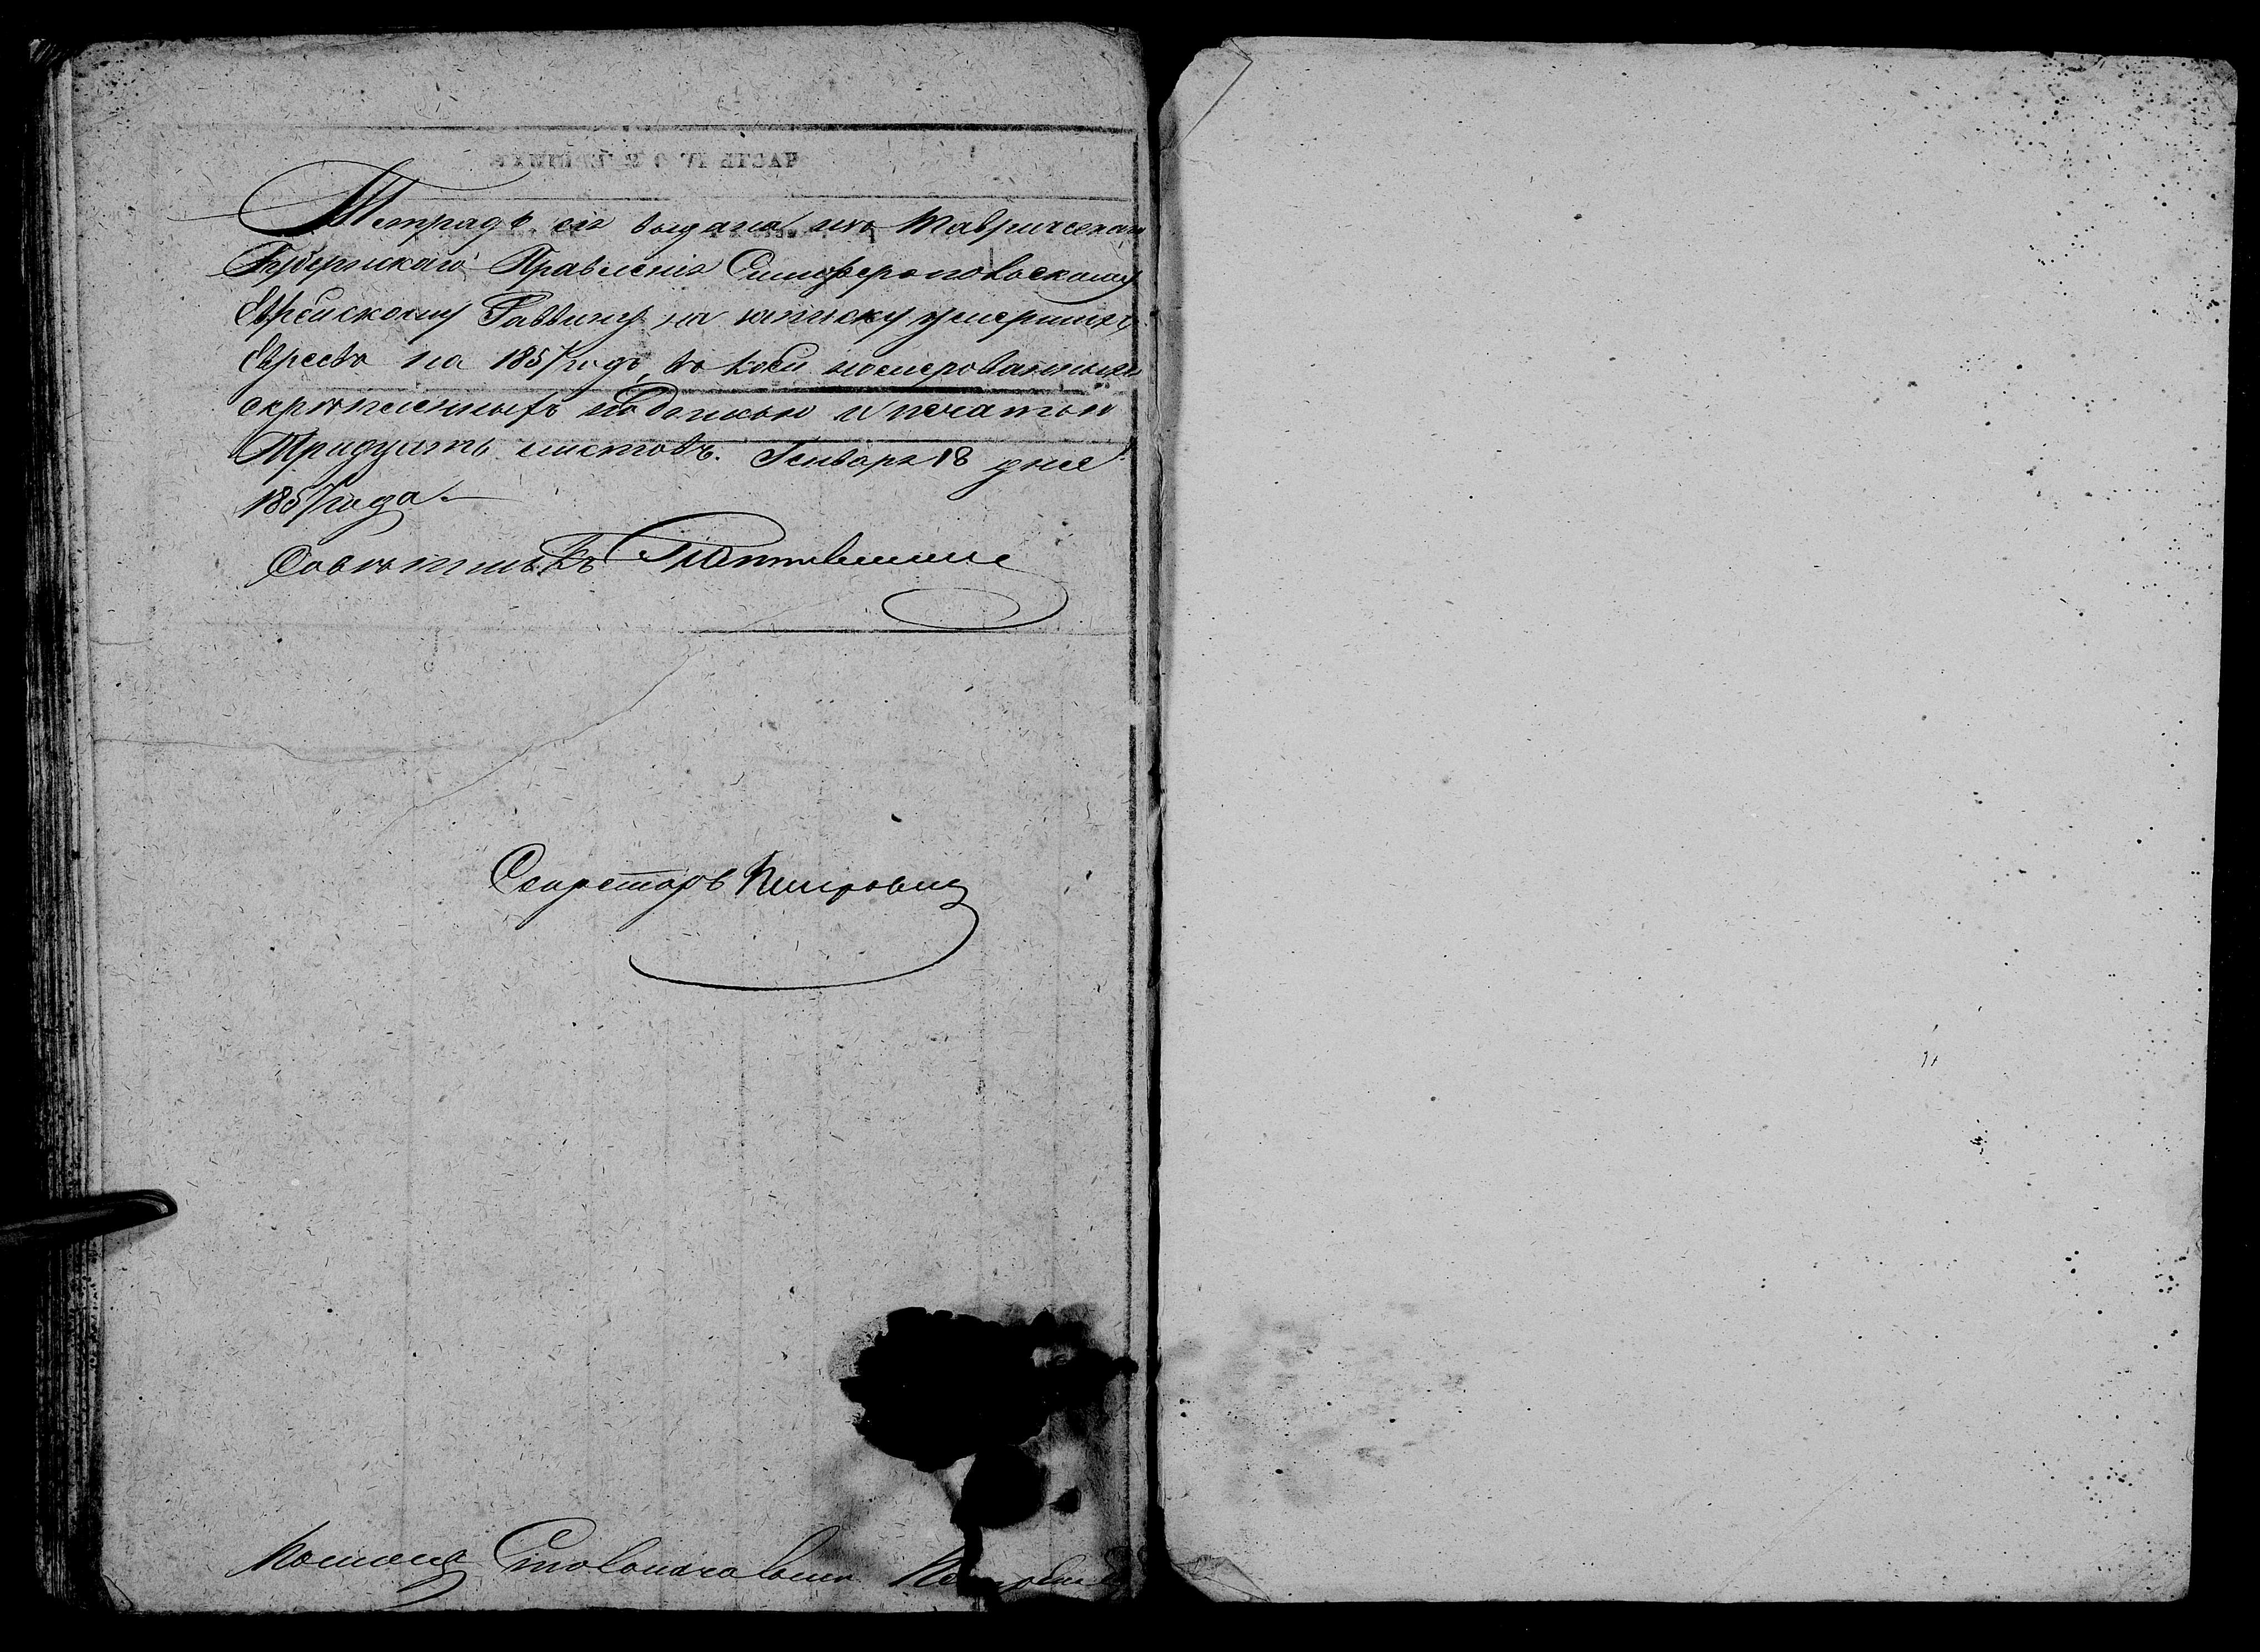 Тетрадь сія выдана изъ Таврическаго
Губернскаго Правленія Симферопольскому
Еврейскому Раввину на записку умершихъ
Евреевъ на 1857 годъ, въ коей номерованныхъ
скрѣпленныхъ подписью и печатью
Тридцать листовъ. Генваря 18 дня
1857 года.
Совѣтникъ
Секретарь